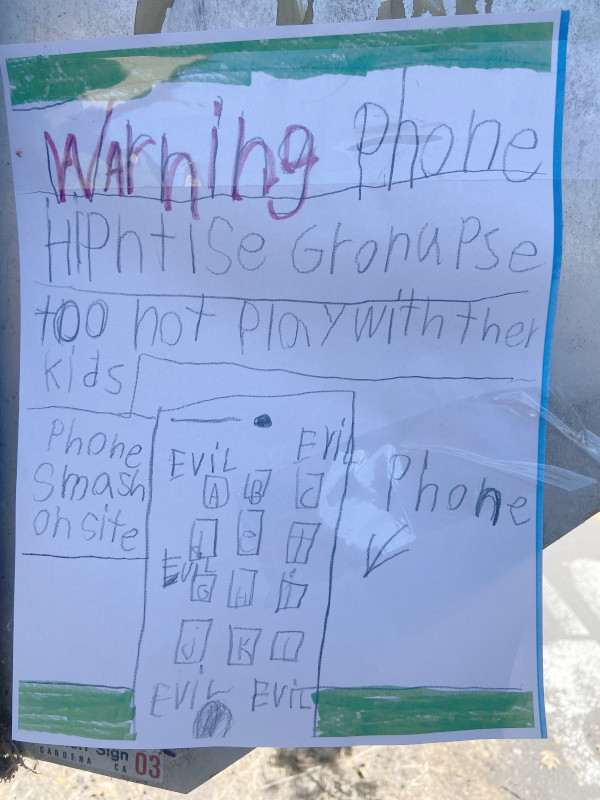 Warning Phone
HIPhtiSe GronuPse
too not Play with ther
kids
Phone
Smash
On site
EVIL
EVIL
A B C
d e f
EVIL
G H i
J K l
EVIL EVIL
Phone
Sign 03
GARDENA CA